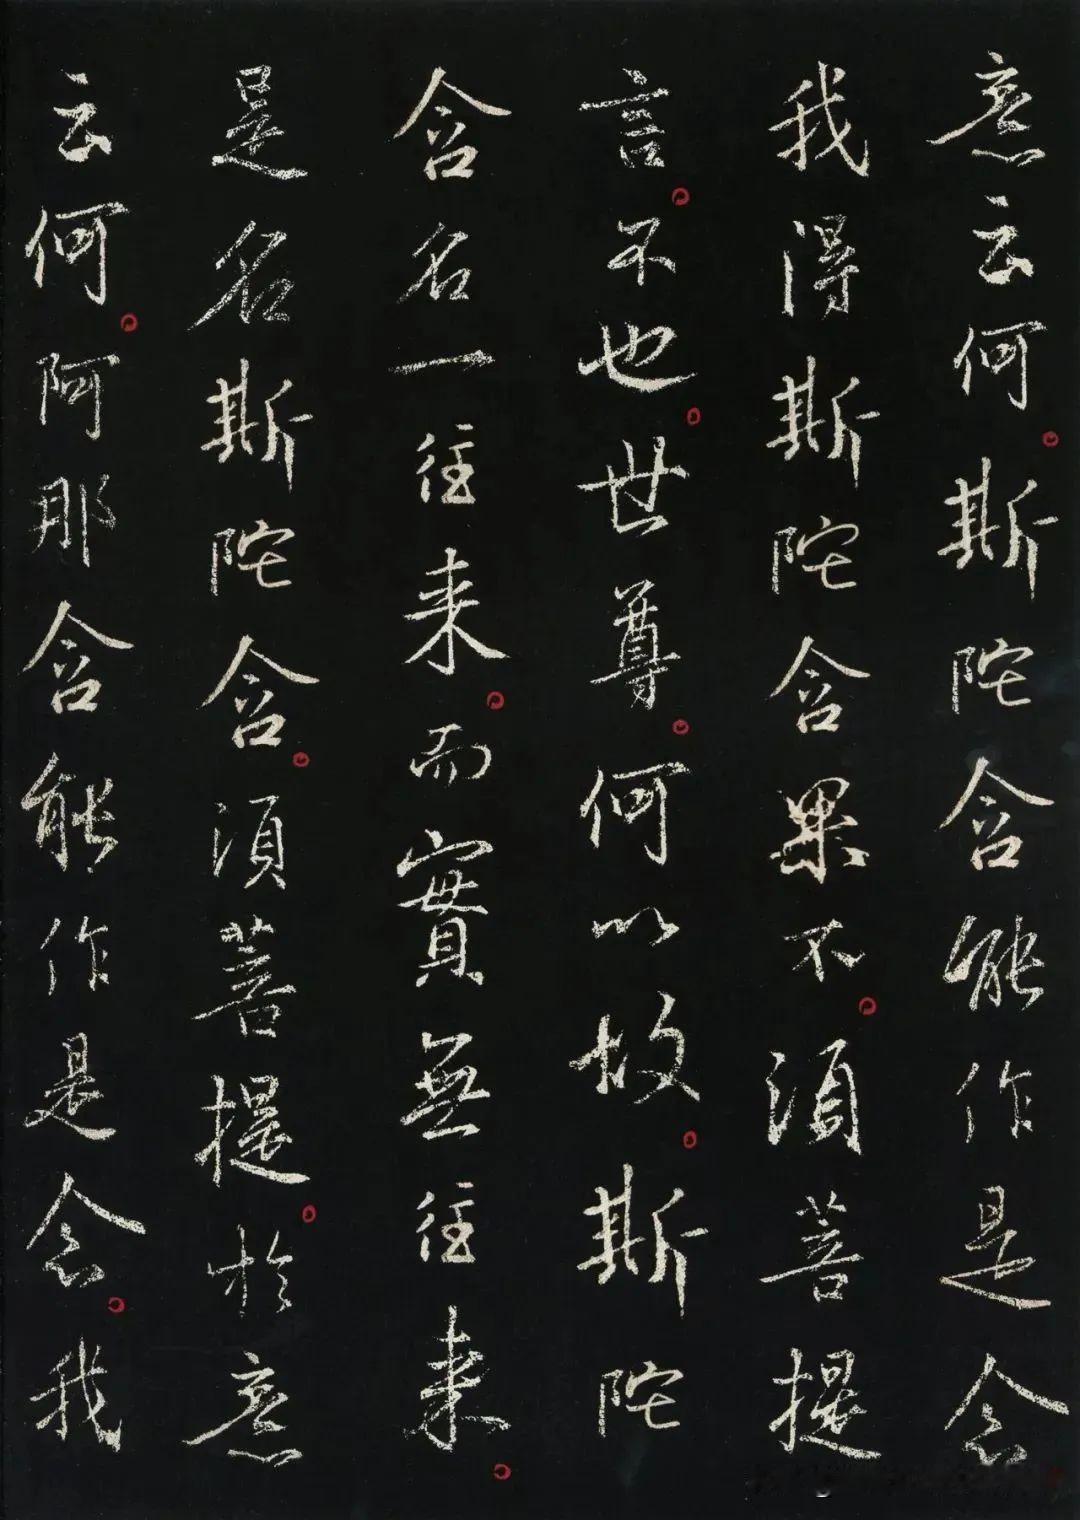 意云何。斯陀含能作是念
我得斯陀含果不。須菩提
言。不也。世尊。何以故。斯陀
含名一往来。而實無往来。
是名斯陀含。須菩提。於意
云何。阿那含能作是念。我